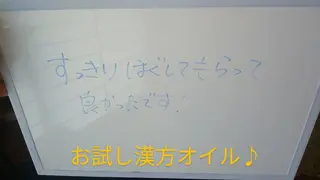 すっきりほぐしてもらって
良かったです!
お試し漢方オイル♪